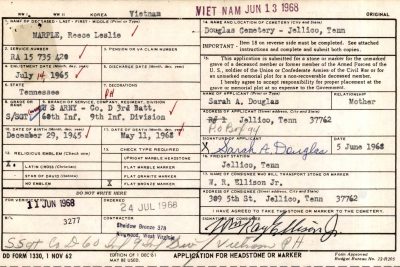 WW I WW II KOREA Vietnam
VIET NAM JUN 13 1968
1. NAME OF DECEASED - LAST - FIRST - MIDDLE (Print or Type)
MARPLE, Reese Leslie
14. NAME AND LOCATION OF CEMETERY (City and State)
Douglas Cemetery - Jellico, Tenn
2. SERVICE NUMBER
3. PENSION OR VA CLAIM NUMBER
RA 15 735 420
IMPORTANT - Item 18 on reverse side must be completed. See attached instructions and complete and submit both copies.
4. ENLISTMENT DATE
5. DISCHARGE DATE
July 14, 1965
15. This application is submitted for a stone or marker for the unmarked grave of a deceased member or former member of the Armed Forces of the U.S., soldier of the Union or Confederate Armies of the Civil War or for an unmarked memorial plot for a non-recovered deceased member.
I hereby agree to accept responsibility for proper placement at the grave or memorial plot at no expense to the Government.
6. STATE
7. DECORATIONS
Tennessee
PH
8. GRADE
9. BRANCH OF SERVICE, COMPANY, REGIMENT, DIVISION
S/SGT
U S ARMY - Co, D 3rd Batt,
60th Inf, 9th Inf, Division
Sarah A. Douglas
RELATIONSHIP
Mother
Rf 1 Jellico, Tenn 37762
P.O. Box 94
10. DATE OF BIRTH
11. DATE OF DEATH
December 29, 1945
May 11, 1968
Sarah A. Douglas
5 June 1968
12. RELIGIOUS EMBLEM (Check one)
13. CHECK TYPE REQUIRED
UPRIGHT MARBLE HEADSTONE
X LATIN CROSS (Christian)
FLAT MARBLE MARKER
STAR OF DAVID (Jewish)
FLAT GRANITE MARKER
NO EMBLEM
X FLAT BRONZE MARKER
16. FREIGHT STATION
Jellico, Tenn.
17. NAME OF CONSIGNEE WHO WILL TRANSPORT STONE OR MARKER
W. R. Ellison Jr.
ADDRESS OF CONSIGNEE (Street, City and State)
309 5th St, Jellico, Tenn 37762
DO NOT WRITE HERE
11 JUN 1968
24 JUL 1968
B/L
3277
Sheidow Bronze 378
Kingwood, West Virginia
I HAVE AGREED TO TAKE THE STONE OR MARKER TO THE CEMETERY.
Wm Ray Ellison Jr.
S Sgt Co D 60 Inf 9 Inf Div Vietnam PH
DD FORM 1330, 1 NOV 62
EDITION OF 1 DEC 61 MAY BE USED.
APPLICATION FOR HEADSTONE OR MARKER
Form Approved
Budget Bureau No. 22-R205
ORIGINAL